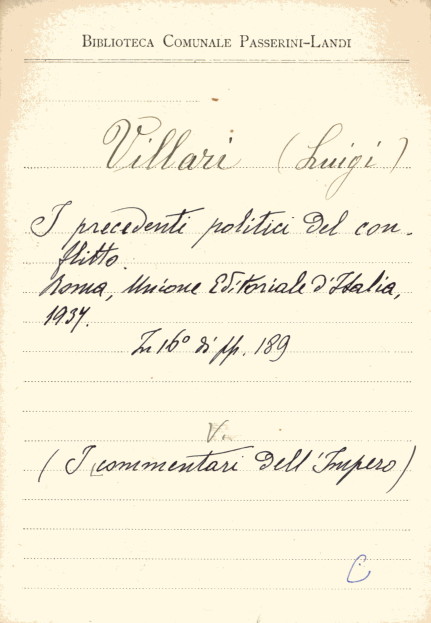 BIBLIOTECA COMUNALE PASSERINI-LANDI
Villari (Luigi)
I precedenti politici del con-
flitto.
Roma, Unione Editoriale d'Italia,
1937.
In 16° di pp. 189
(I commentari dell'Impero)
C